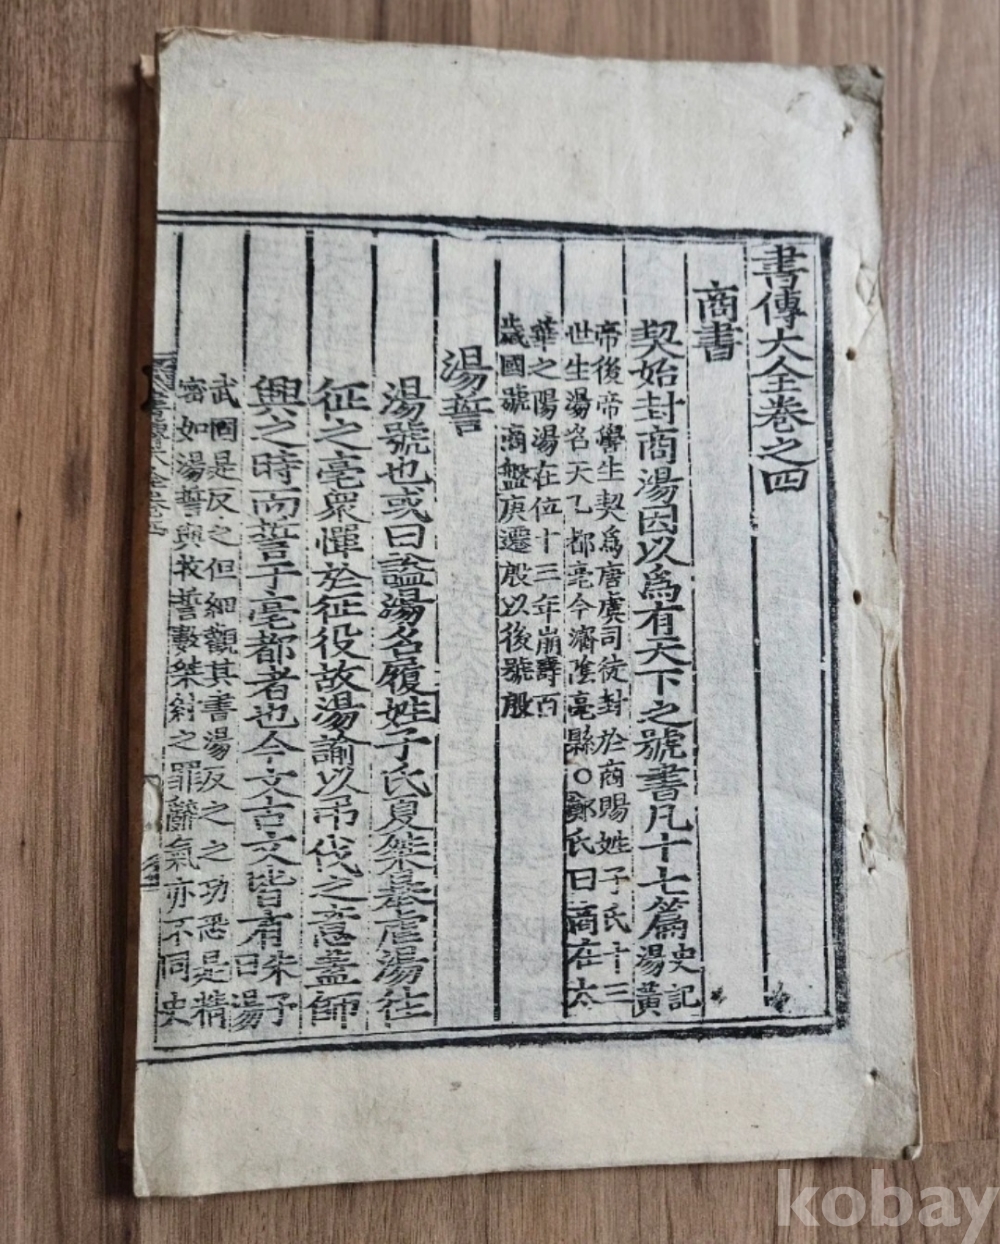 書傳大全卷之四
商書
契始封商湯因以爲有天下之號書凡十七篇
史記
湯黃
帝後帝嚳生契爲唐虞司徒封於商賜姓子氏十三
世生湯名天乙都亳今濟陰亳縣○鄭氏曰商在太
華之陽湯在位十三年崩壽百
歲國號商盤庚遷殷以後號殷
湯誓
湯號也或曰謚湯名履姓子氏夏桀暴虐湯往
征之亳衆憚於征役故湯諭以弔伐之意蓋師
興之時而誓于亳都者也今文古文皆有
朱子
曰湯
武固是反之但細觀其書湯反之之功恐是精
密如湯誓與牧誓數桀紂之罪辭氣亦不同史
kobay